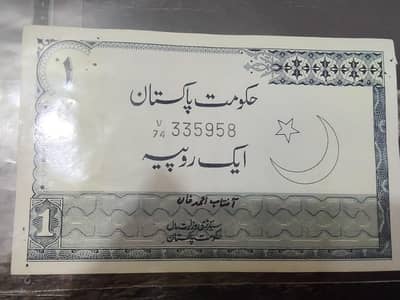 ۱
حکومت پاکستان
V/74 335958
ایک روپیہ
آفتاب احمد خان
سیکرٹری وزارت مال
حکومت پاکستان
1